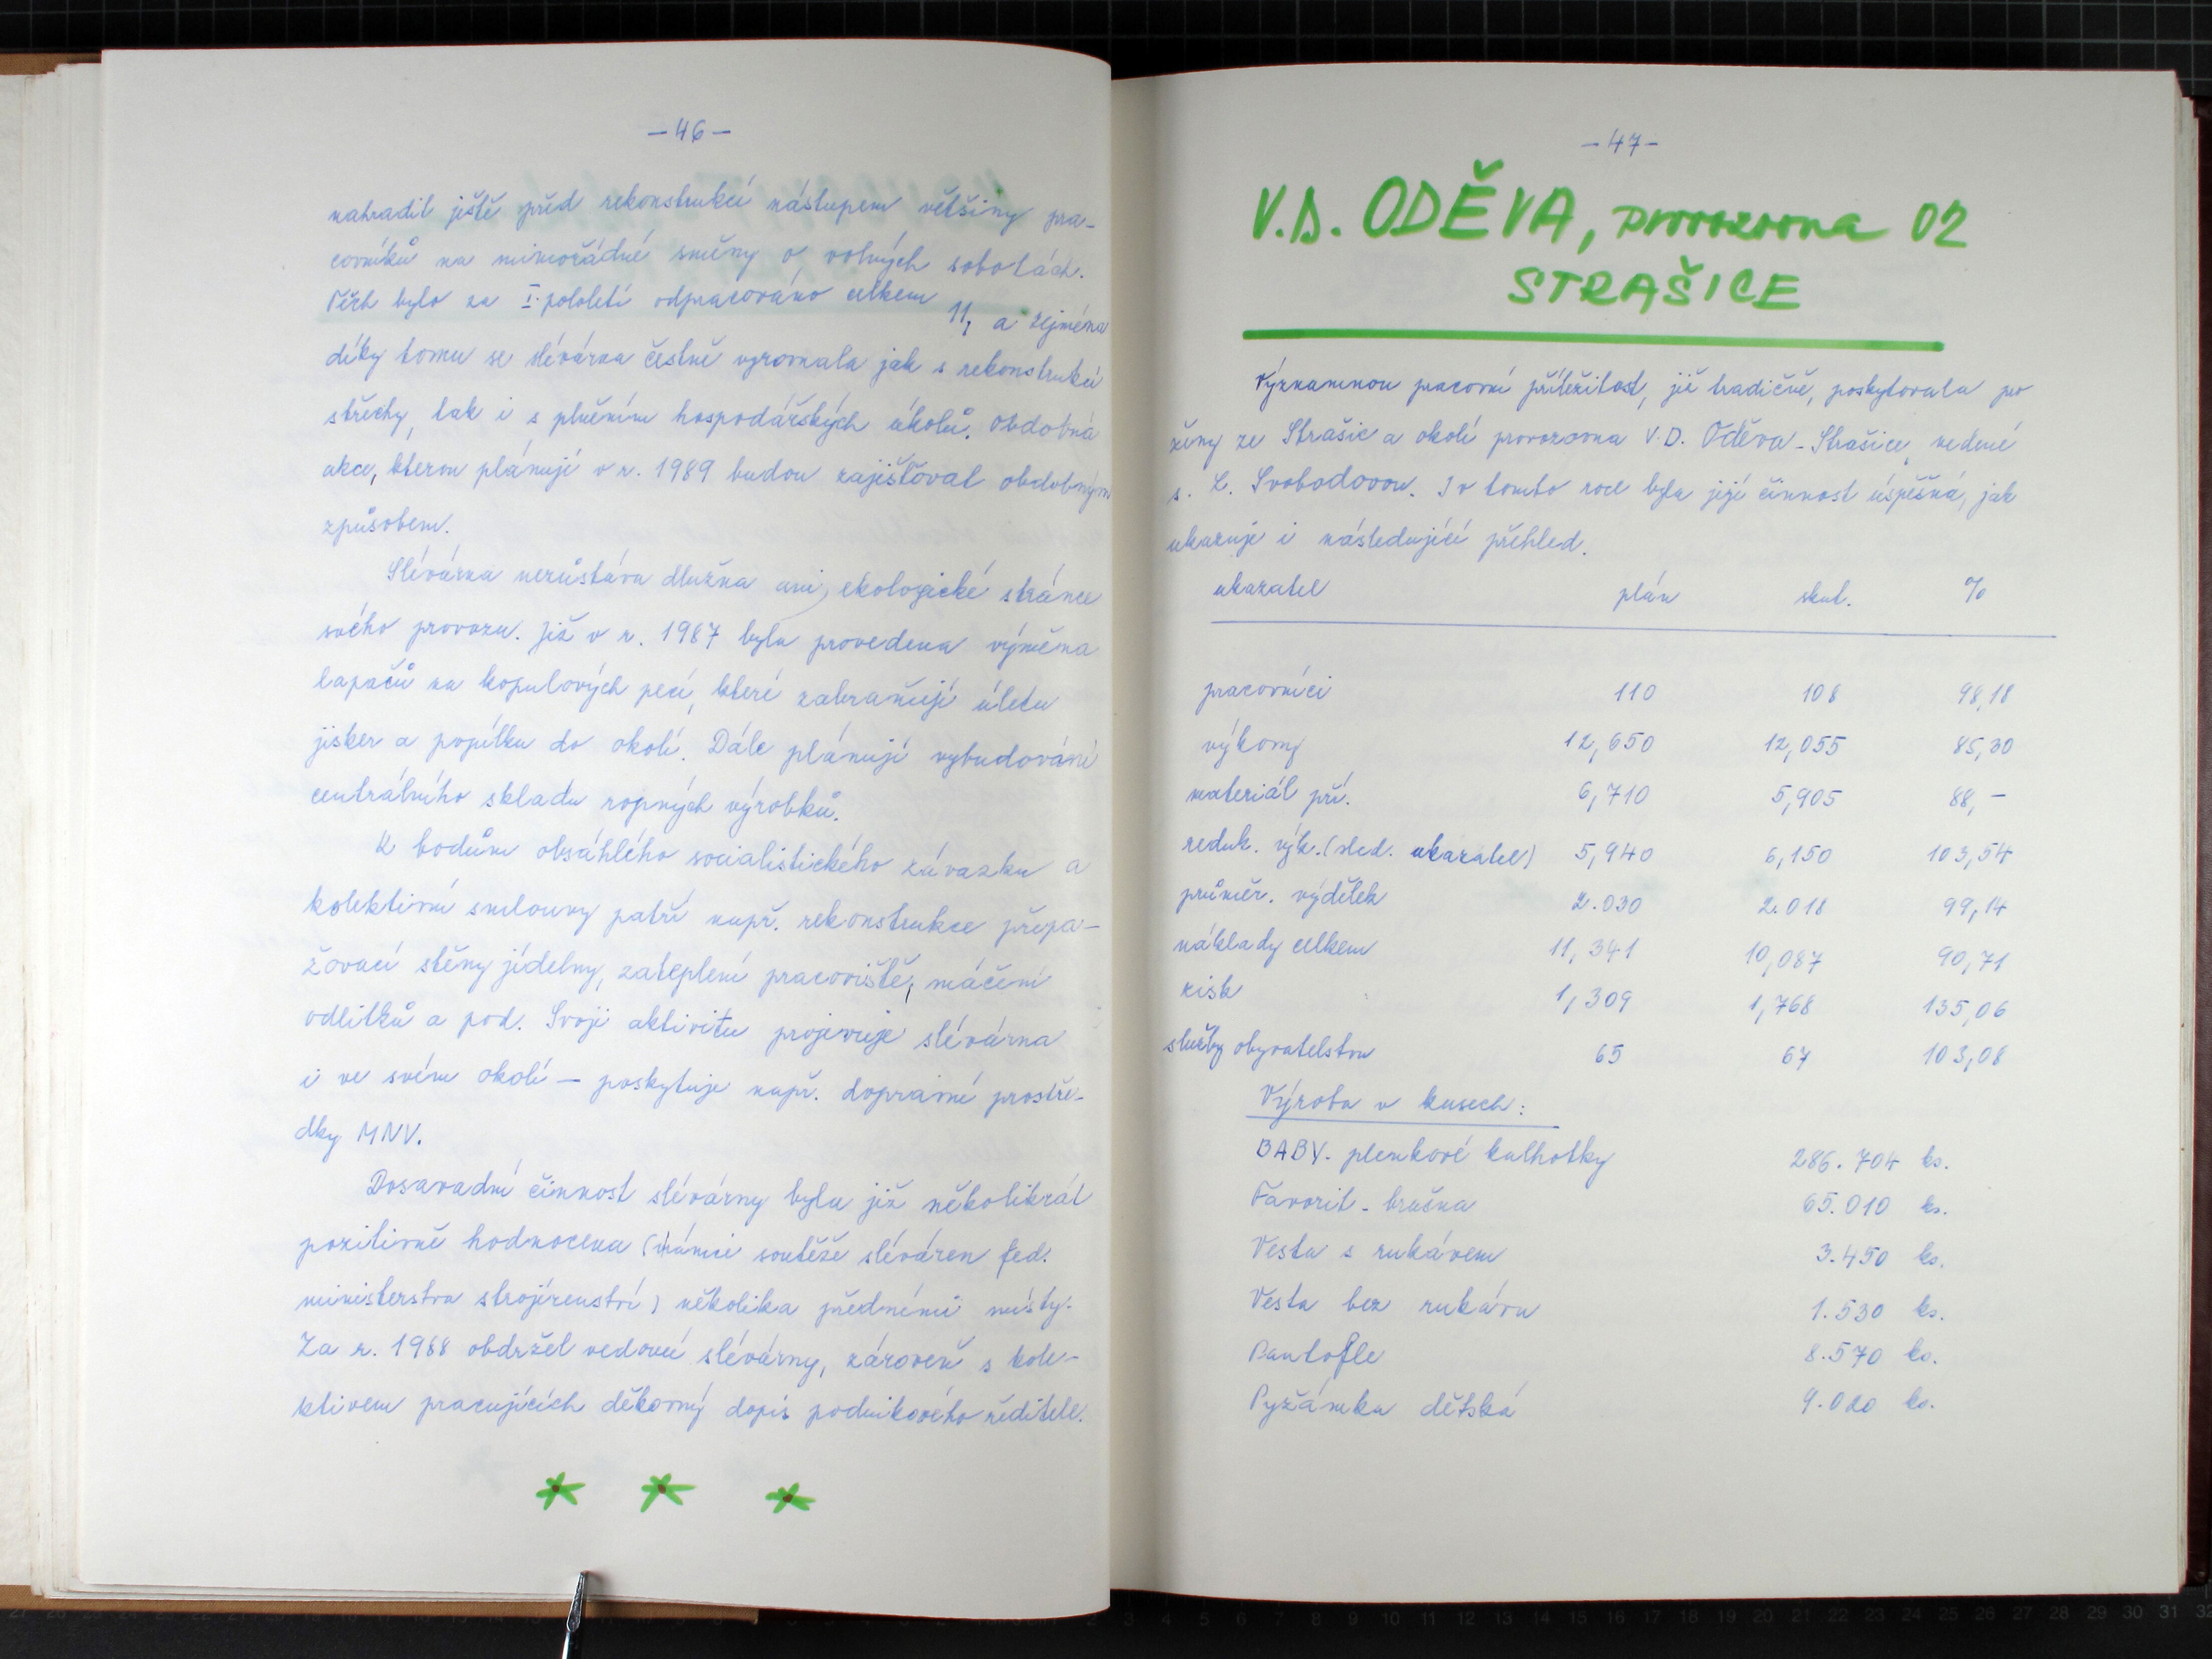 -46-
nahradit ještě před rekonstrukcí nástupem většiny pra-
covníků na mimořádné směny o volných sobotách.
Těch bylo za I. pololetí odpracováno celkem 11, a zejména
díky tomu se slévárna čestně vyrovnala jak s rekonstrukcí
střechy, tak i s plněním hospodářských úkolů. Obdobná
akce, kterou plánují v r. 1989 budou zajišťovat obdobným
způsobem.
Slévárna nezůstává dlužna ani ekologické stránce
svého provozu. Již v r. 1987 byla provedena výměna
lapačů na kopulových pecí, které zabraňují úletu
jisker a popílku do okolí. Dále plánují vybudování
centrálního skladu ropných výrobků.
K bodům obsáhlého socialistického závazku a
kolektivní smlouvy patří např. rekonstrukce přepa-
žovací stěny jídelny, zateplení pracoviště, máčení
odlitků a pod. Svoji aktivitu projevuje slévárna
i ve svém okolí – poskytuje např. dopravní prostře-
dky MNV.
Dosavadní činnost slévárny byla již několikrát
pozitivně hodnocena (rámci soutěže sléváren fed.
ministerstva strojírenství) několika předními místy.
Za r. 1988 obdržel vedoucí slévárny, zároveň s kole-
ktivem pracujících děkovný dopis podnikového ředitele.
-47-
V.D. ODĚVA, provozovna 02
STRAŠICE
Významnou pracovní příležitost, již tradičně, poskytovala pro
ženy ze Strašic a okolí provozovna V.D. Oděva - Strašice, vedené
s. L. Svobodovou. I v tomto roce byla její činnost úspěšná, jak
ukazuje i následující přehled.
ukazatel plán skut. %
pracovníci 110 108 98,18
výkony 12,650 12,055 85,30
materiál pří. 6,710 5,905 88,-
reduk. výk. (sled. ukazatel) 5,940 6,150 103,54
průměr. výdělek 2.030 2.018 99,14
náklady celkem 11,341 10,087 90,71
zisk 1,309 1,768 135,06
služby obyvatelstvu 65 67 103,08
Výroba v kusech:
BABY - plenkové kalhotky 286.704 ks.
Favorit - brašna 65.010 ks.
Vesta s rukávem 3.450 ks.
Vesta bez rukávu 1.530 ks.
Pantofle 8.570 ks.
Pyžámka dětská ks.